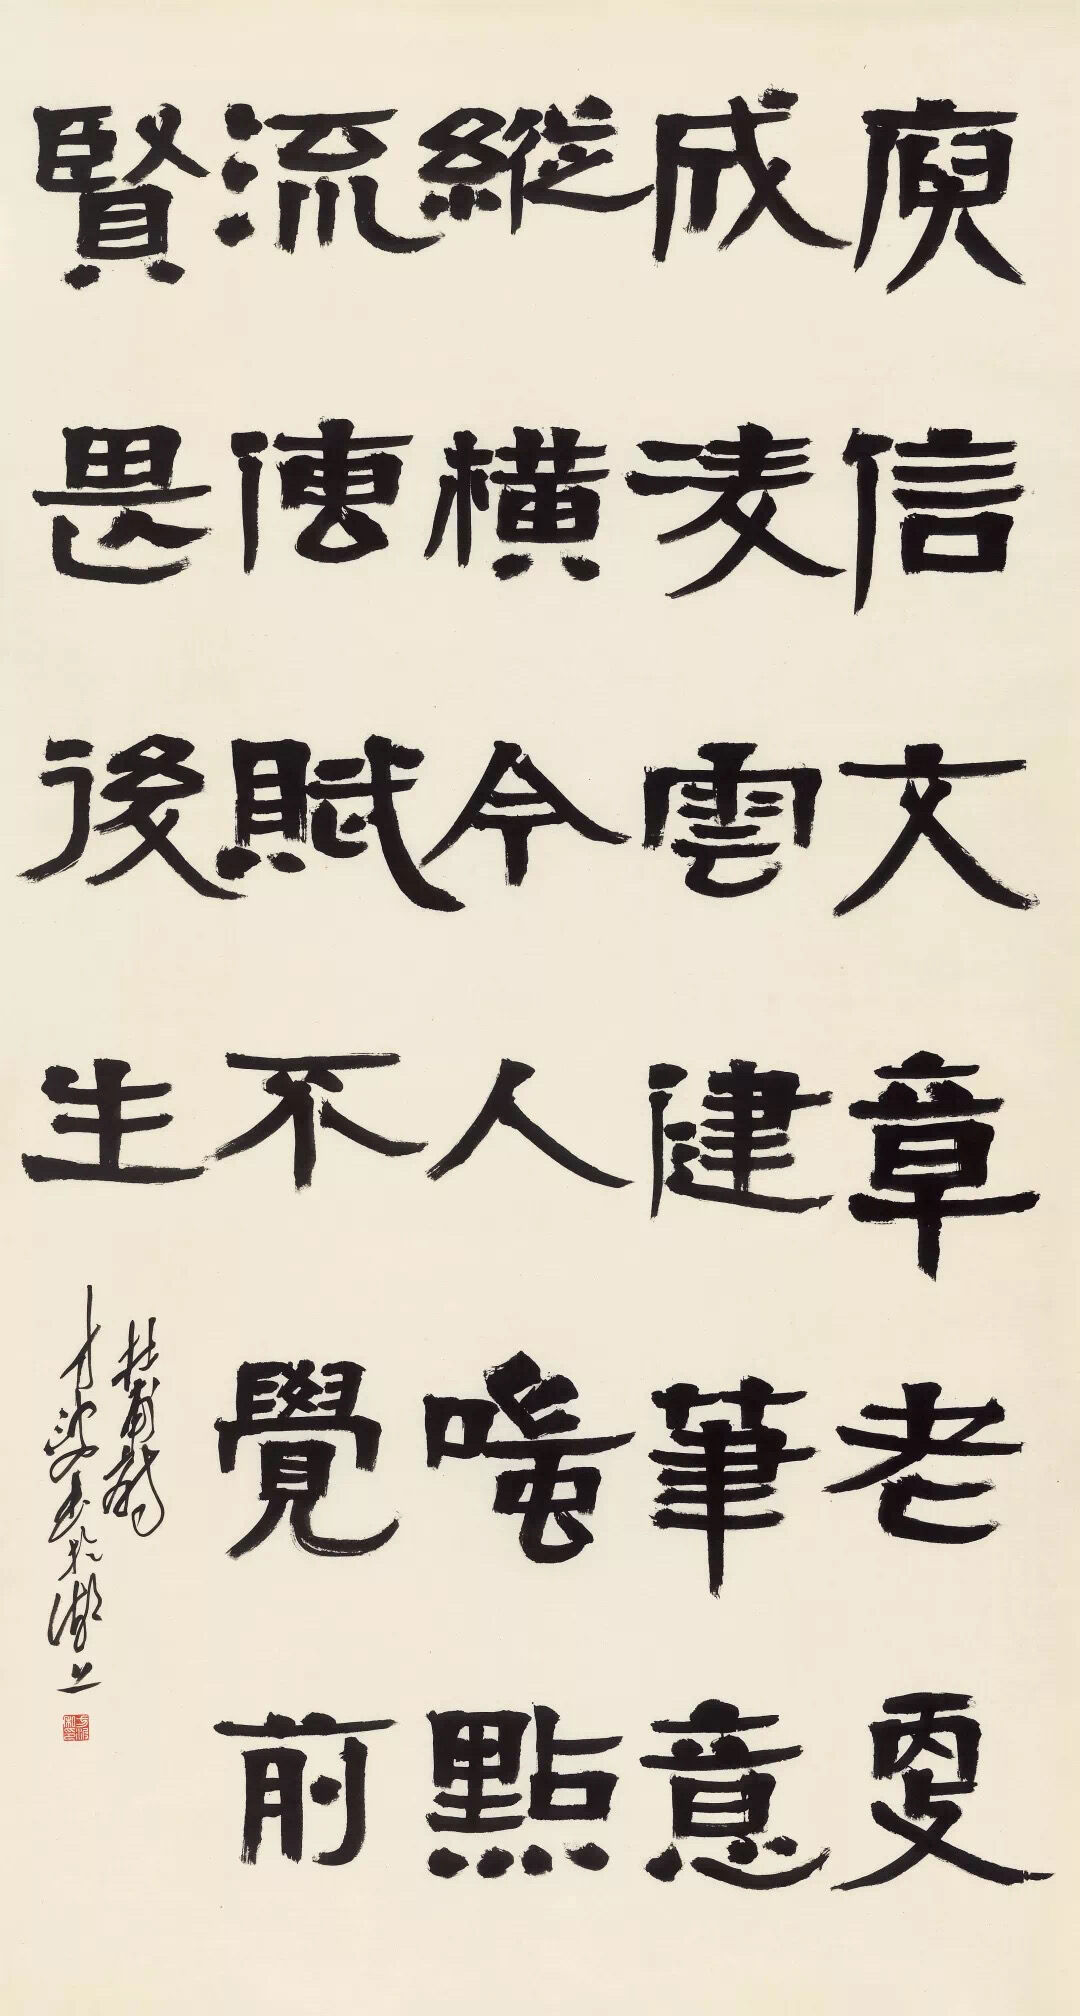 庾信文章老更
成凌雲健筆意
縱橫今人嗤點
流傳賦不覺前
賢畏後生
杜甫詩
方波書於湖上